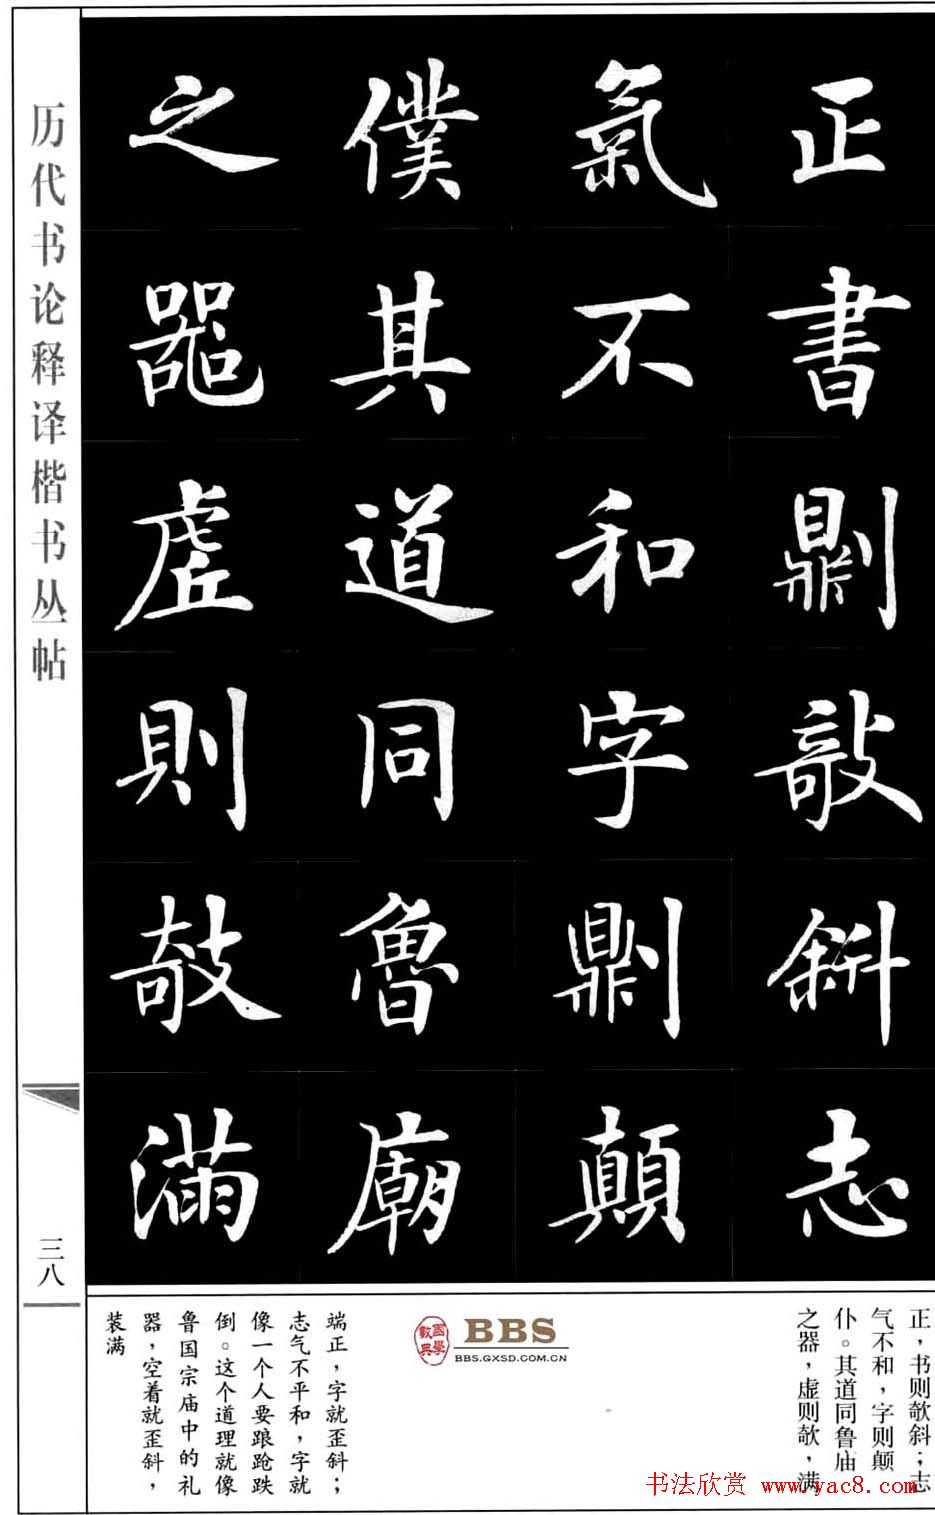 正書劓敧斜志
氣不和字劓顛
僕其道同魯廟
之器虛則敧滿
历代书论释译楷书丛帖
三八
正，书则欹斜；志
气不和，字则颠
仆。其道同鲁庙
之器，虚则欹，满
國學數典
BBS
BBS.GXSD.COM.CN
端正，字就歪斜；
志气不平和，字就
像一个人要踉跄跌
倒。这个道理就像
鲁国宗庙中的礼
器，空着就歪斜，
装满
书法欣赏 www.yac8.com